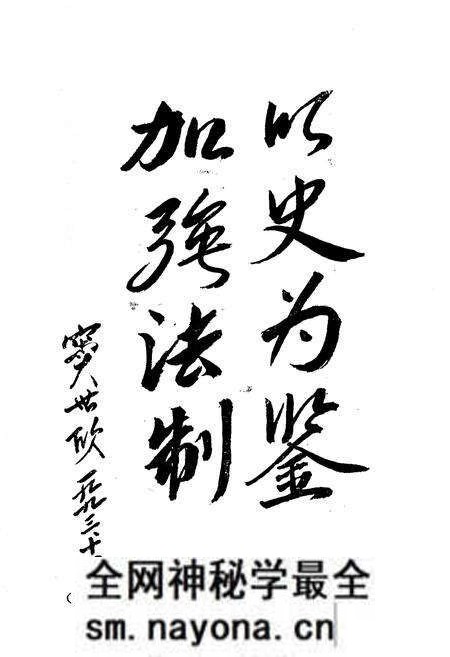 以史为鉴
加强法制
一九九三、十
全网神秘学最全
sm.nayona.cn